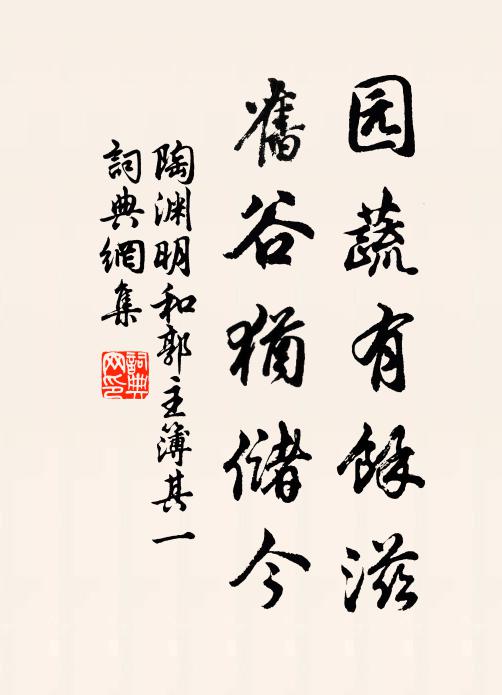 园蔬有馀滋
舊谷猶儲今
陶渊明和郭主簿其一
詞典網集
詞典网印